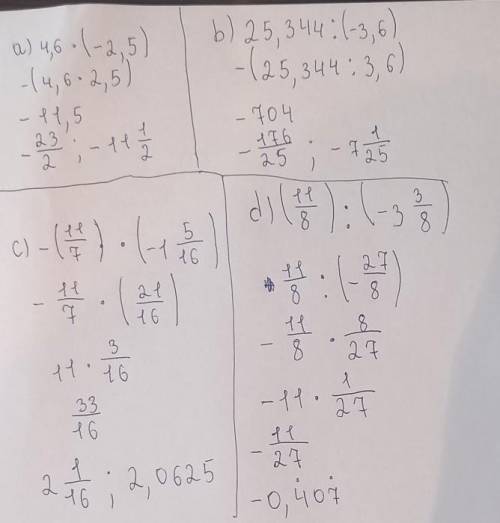 a) 4,6 · (-2,5)
-(4,6 · 2,5)
-11,5
-23/2 ; -11 1/2
b) 25,344 : (-3,6)
-(25,344 : 3,6)
-704
-176/25 ; -7 1/25
c) -(11/7) · (-1 5/16)
-11/7 · (21/16)
11 · 3/16
33/16
2 1/16 ; 2,0625
d) (11/8) : (-3 3/8)
11/8 : (-27/8)
-11/8 · 8/27
-11 · 1/27
-11/27
-0,4̇07̇